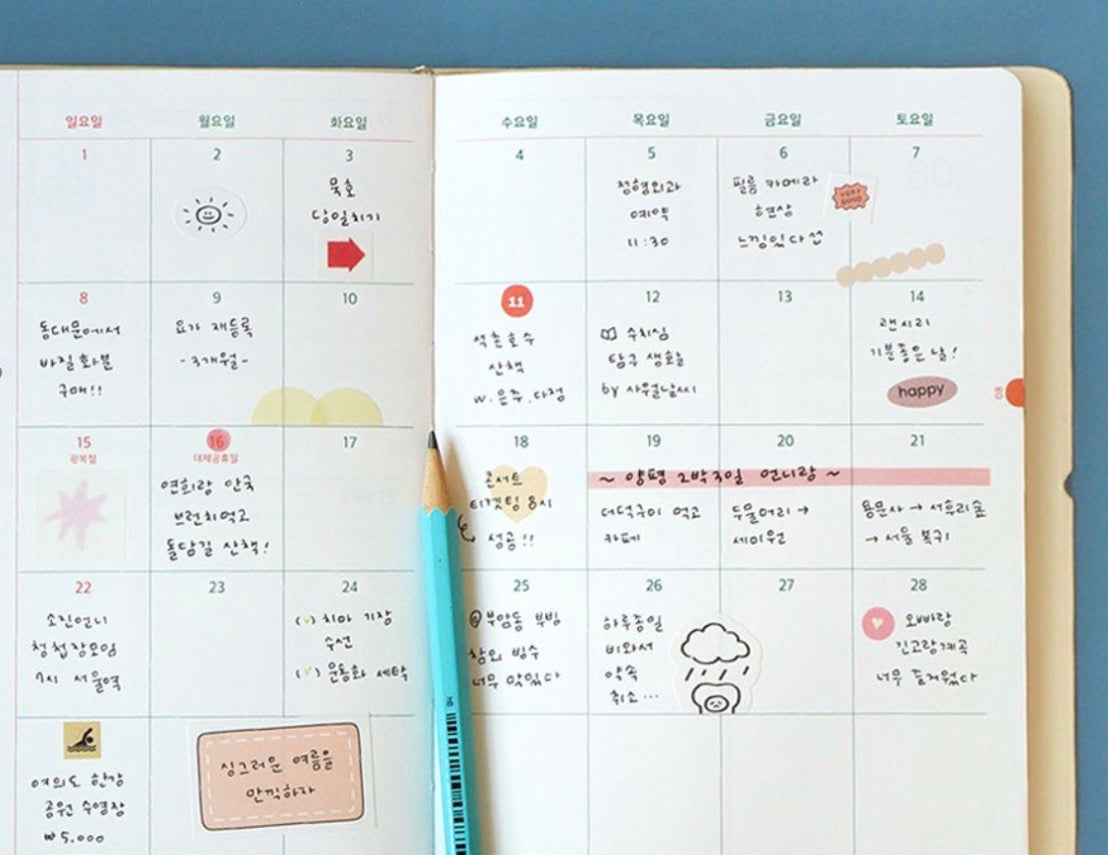 일요일 월요일 화요일 수요일 목요일 금요일 토요일
1
2
3
묵호
당일치기
4
5
정형외과
예약
11:30
6
필름 카메라
현상
느낌있다 선
7
VERY
GOOD
8
동대문에서
바질 화분
구매!!
9
요가 재등록
- 3개월 -
10
11
석촌호수
산책
w. 은주, 다정
12
수치심
탐구 생활
by 사월날씨
13
14
괜시리
기분 좋은 날!
happy
08
15
광복절
16
대체공휴일
연희랑 안국
브런치 먹고
돌담길 산책!
17
18
콘서트
티켓팅 8시
성공!!
19
20
21
~ 양평 2박3일 언니랑 ~
더덕구이 먹고
카페
두물머리 →
세미원
용문사 → 서후리숲
→ 서울 복귀
22
소진언니
청첩장모임
7시 서울역
23
24
(v) 치마 기장
수선
(v) 운동화 세탁
25
@부암동 부빙
참외 빙수
너무 맛있다
26
하루종일
비와서
약속
취소...
27
28
오빠랑
긴고랑계곡
너무 즐거웠다
여의도 한강
공원 수영장
₩5.000
싱그러운 여름을
만끽하자
HB